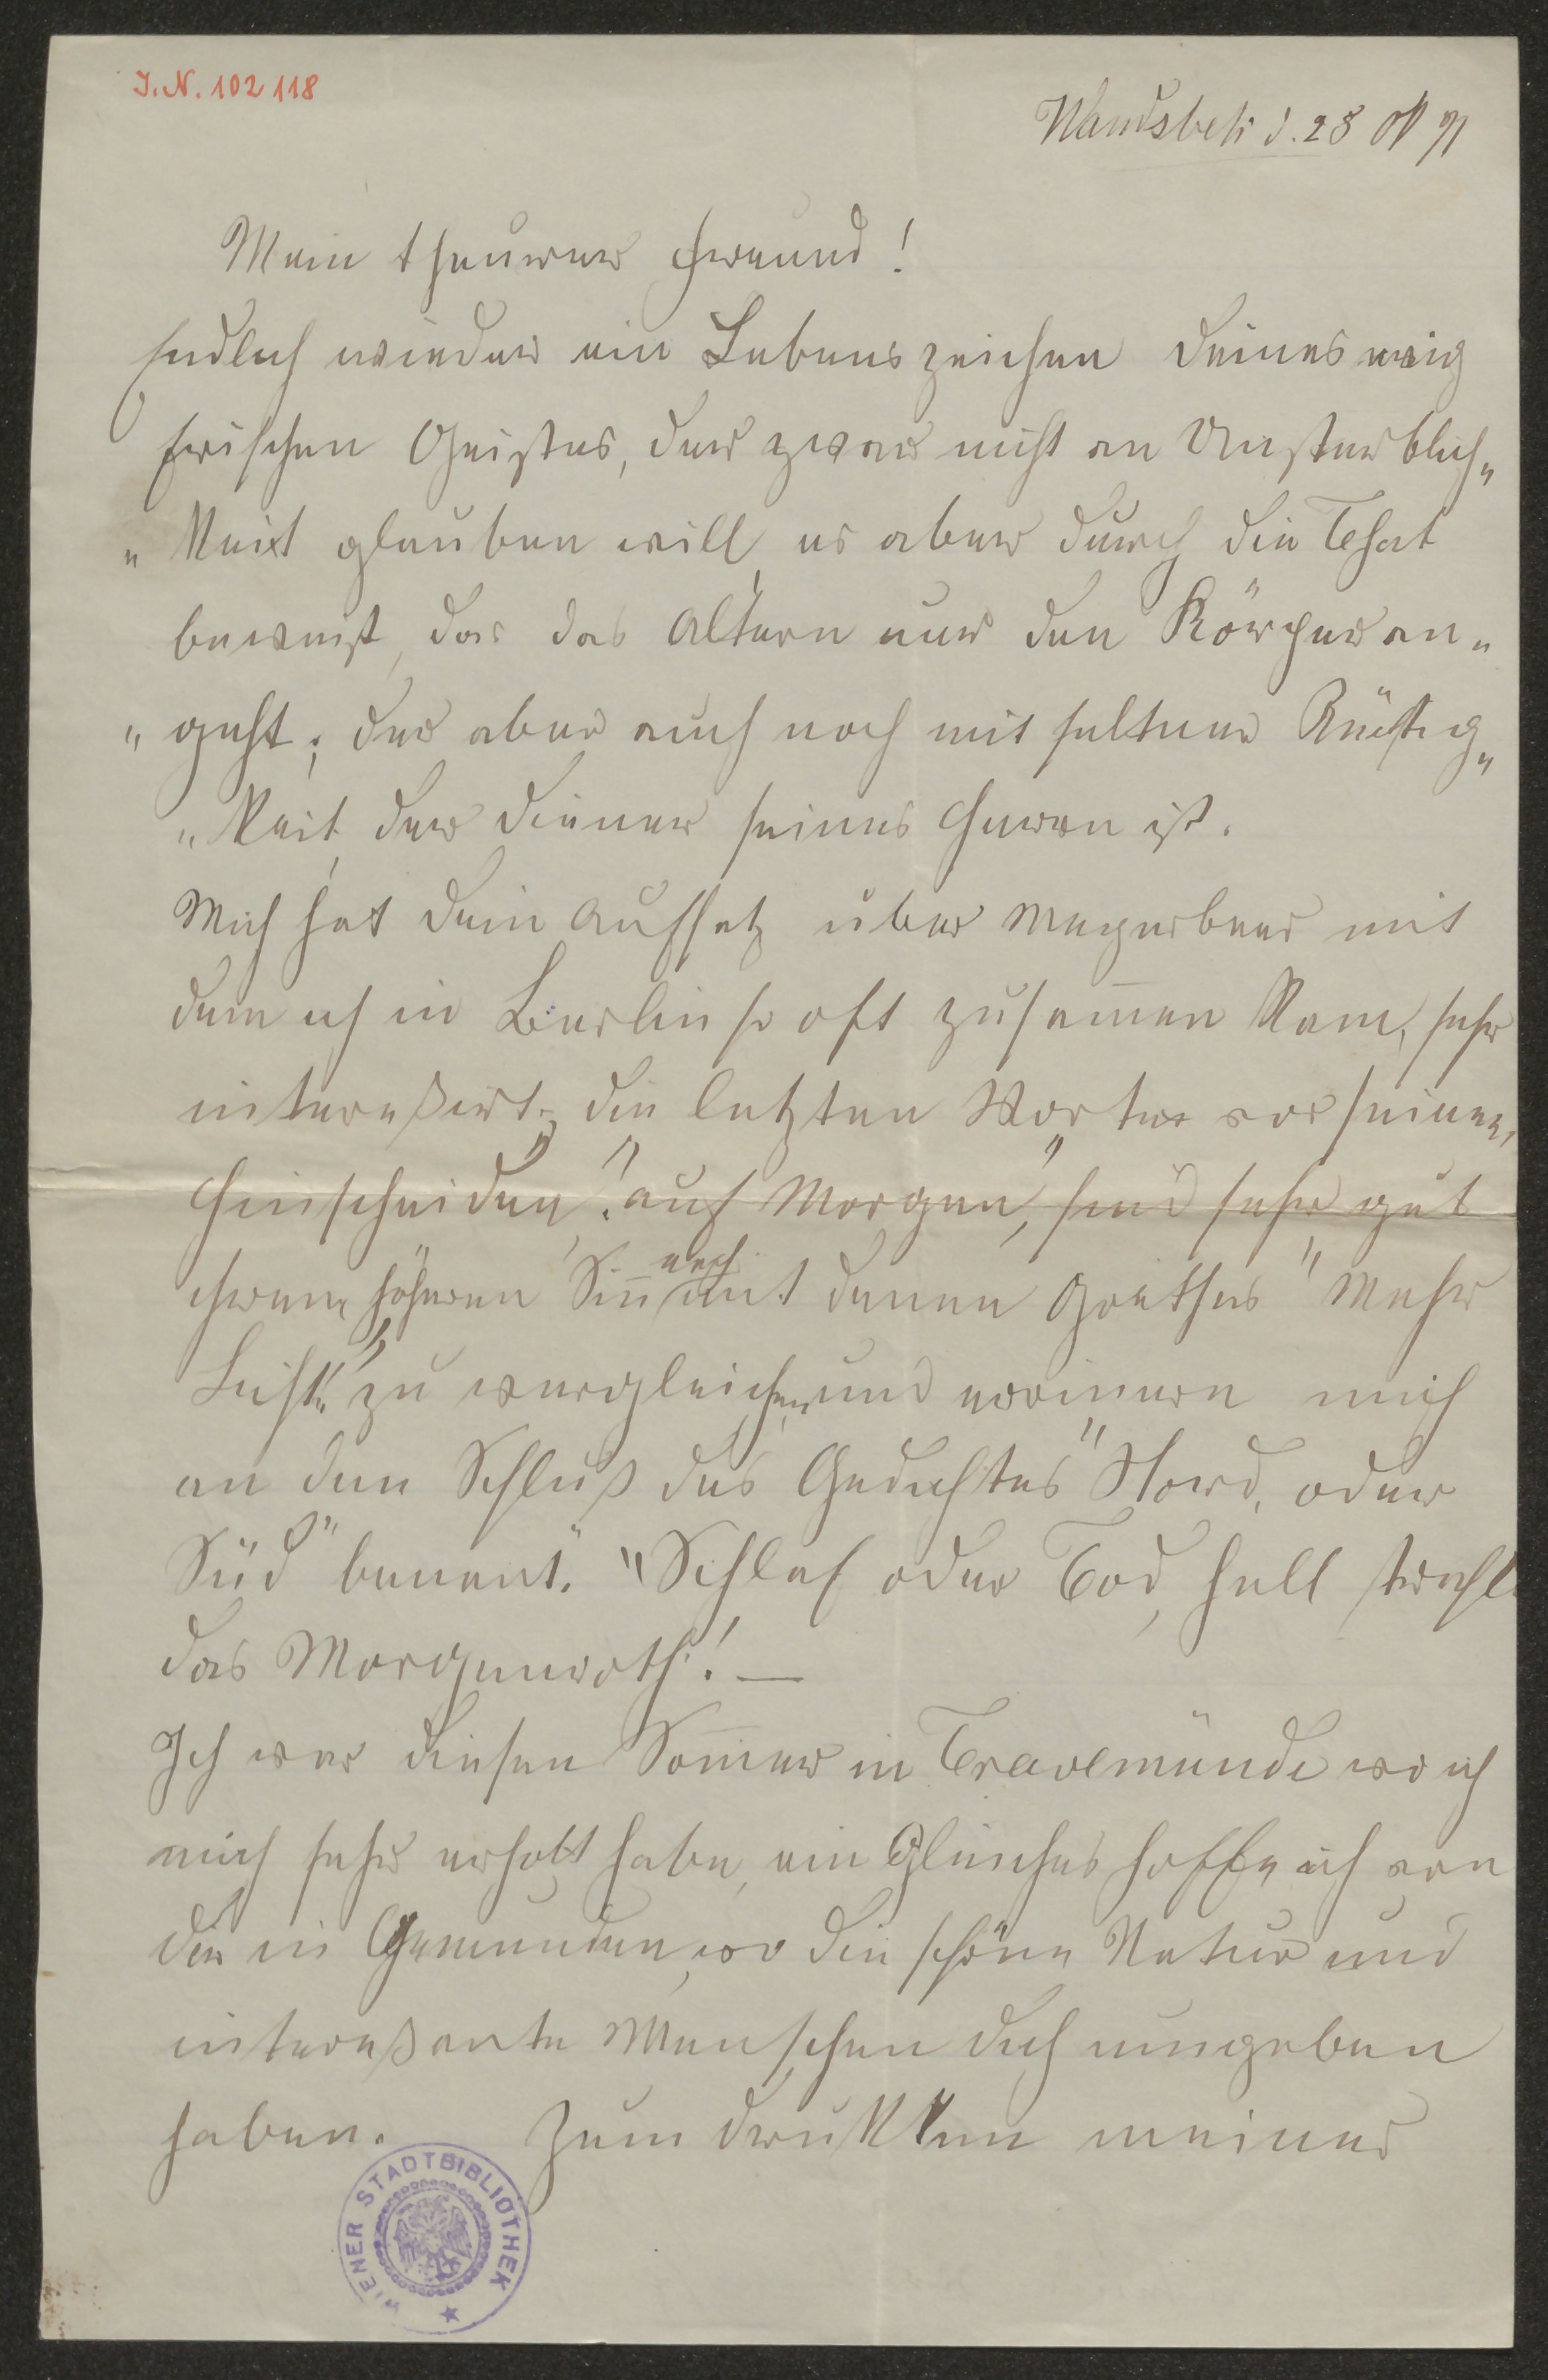 I.N. 102118
Wandsbek d. 28
Mein theurer Freund!
Endlich wieder ein Lebenszeichen deines ewig
frischen Geistes, der zwar nicht an Unsterblich„
„keit glauben will, es aber durch die That
beweist, das das Altern nur den Körper an„
„geht; der aber auch noch mit seltner Rüstig„
„keit, der Diener seines Herren ist.
Mich hat dein Aufsatz über Meyerbeer mit
dem ich in Berlin so oft zusam̅en kam, sehr
intereßirt; die letzten Worte vor seinem
Hinscheiden: "auf Morgen", sind sehr gut
ihrem höheren Sin̅ nach mit denen Goethes "Mehr
Licht" zu vergleichen, und erinnern mich
an den Schluß des Gedichtes "Nord, oder
Süd" benent. "Schlaf oder Tod, hell strahlt
das Morgenroth! —
Ich war diesen Som̅er in Travemünde wo ich
mich sehr erholt habe, ein Gleiches hoffe ich von
dir in Gemunden, wo die schöne Natur und
intereßante Menschen dich umgeben
haben. Zum drukken meiner
WIENER STADTBIBLIOTHEK